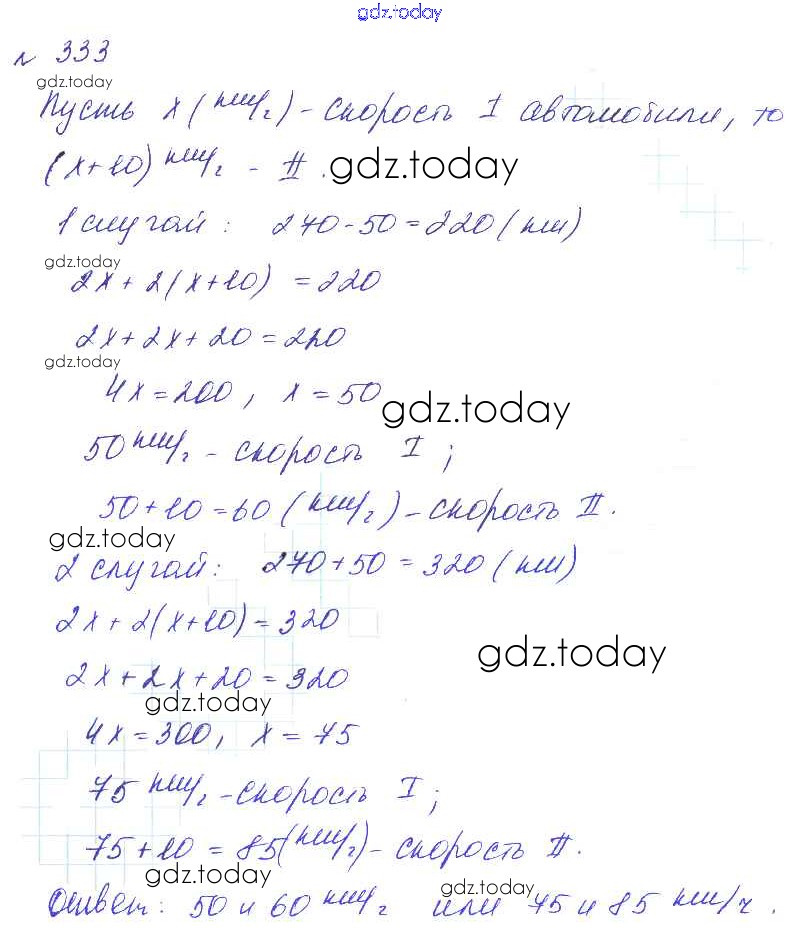 gdz.today
№ 333
gdz.today
Пусть x (км/ч) - скорость I автомобиля, то
(x+10) км/ч - II. gdz.today
1 случай: 270-50=220 (км)
gdz.today
2x+2(x+10) =220
2x+2x+20=220
gdz.today
4x=200, x=50
gdz.today
50 км/ч - скорость I;
50+10=60 (км/ч) - скорость II.
gdz.today
2 случай: 270+50=320 (км)
2x+2(x+10)=320
gdz.today
2x+2x+20=320
gdz.today
4x=300, x=75
75 км/ч - скорость I;
gdz.today
75+10=85(км/ч) - скорость II.
gdz.today
gdz.today
Ответ: 50 и 60 км/ч или 75 и 85 км/ч.